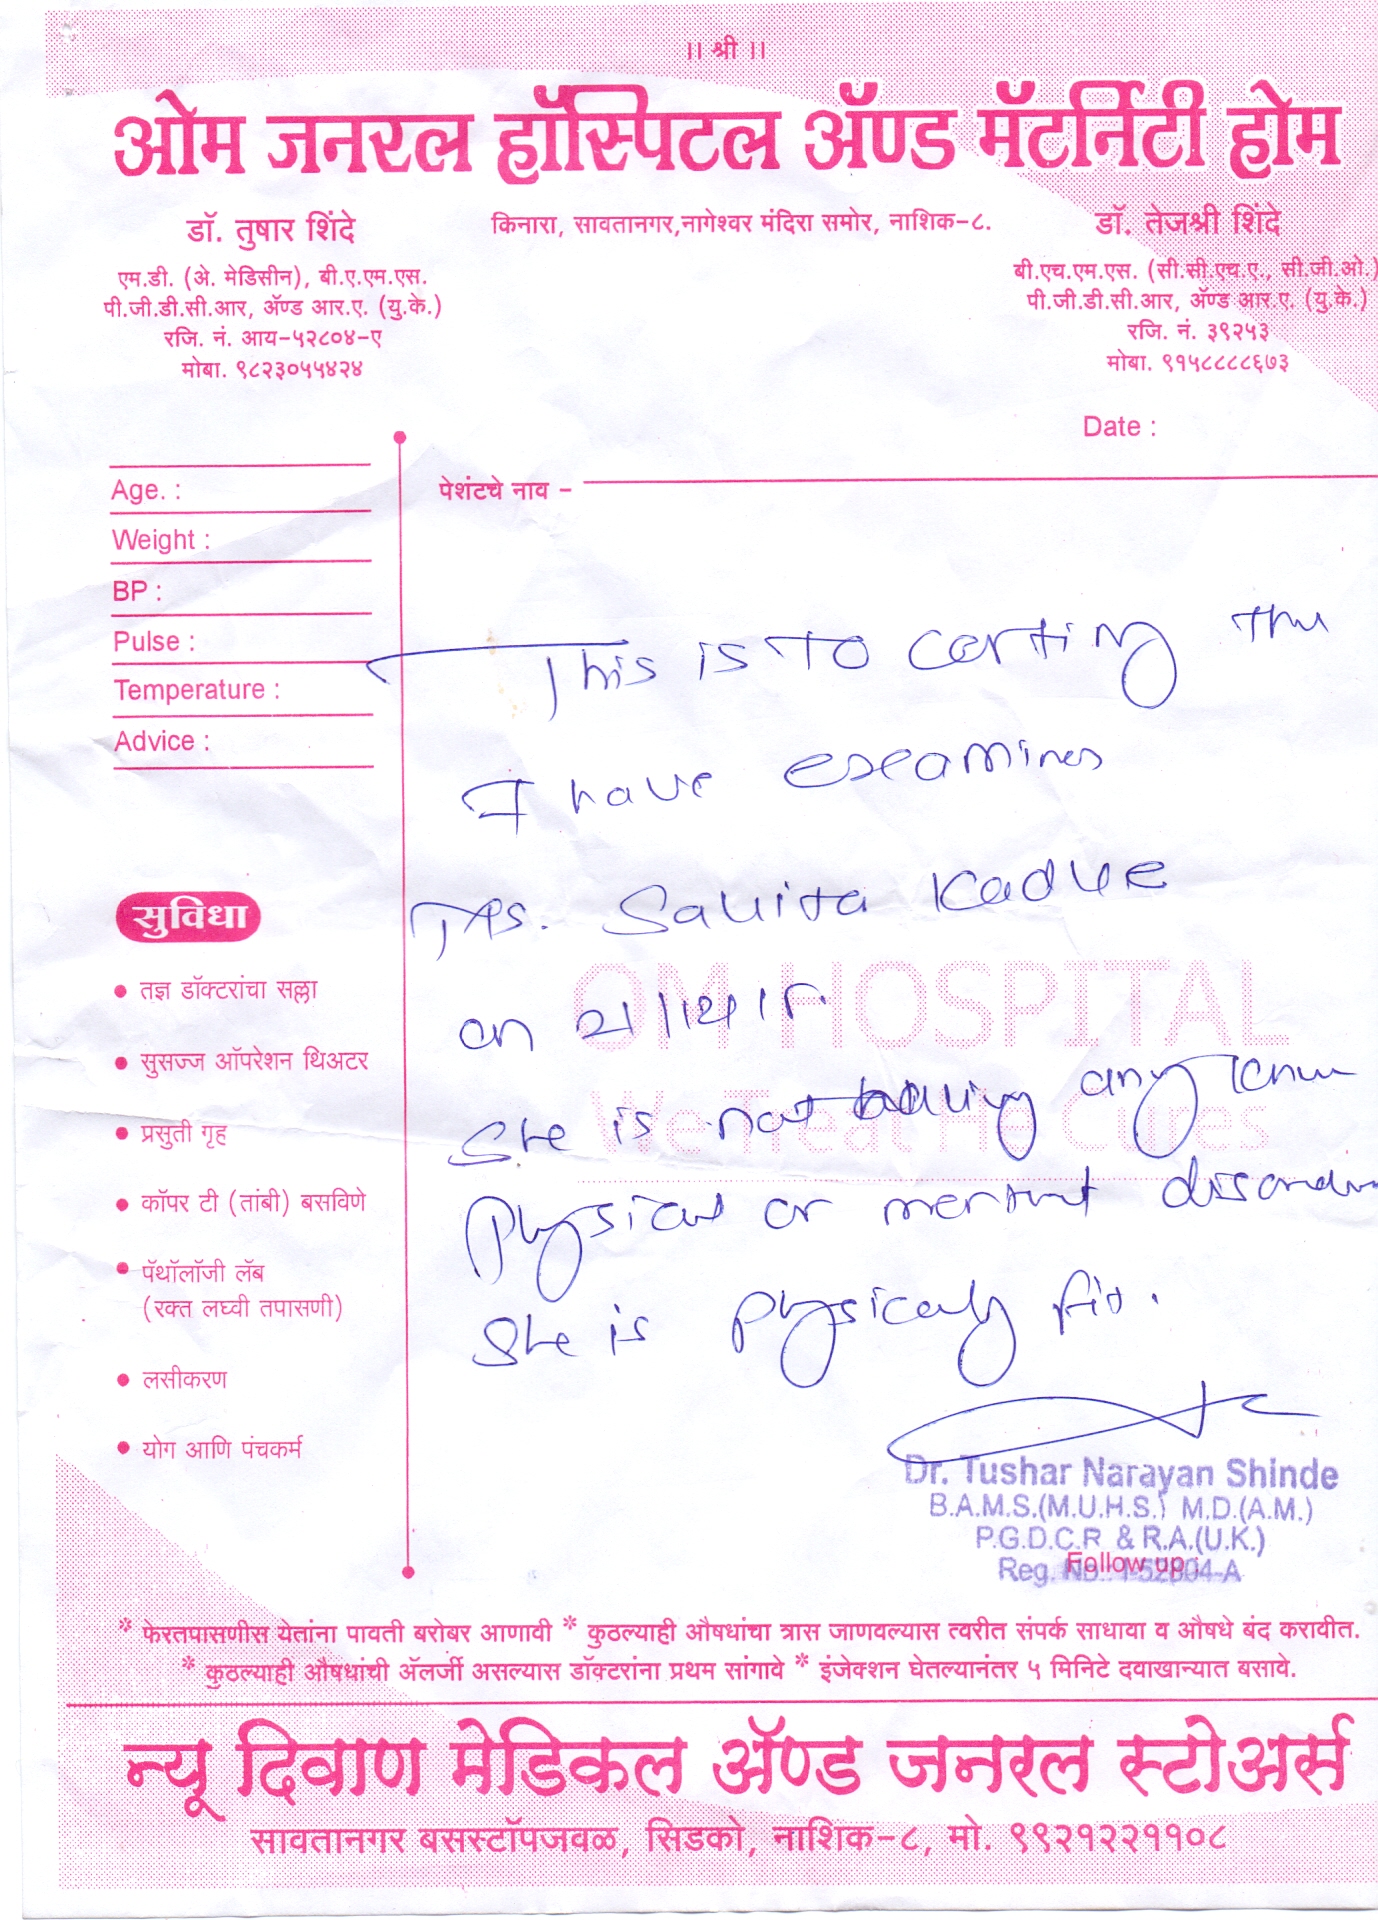 ॥ श्री ॥
ओम जनरल हॉस्पिटल ॲण्ड मॅटर्निटी होम
किनारा, सावतानगर,नागेश्वर मंदिरा समोर, नाशिक-८.
डॉ. तुषार शिंदे
एम.डी. (अे. मेडिसीन), बी.ए.एम.एस.
पी.जी.डी.सी.आर, ॲण्ड आर.ए. (यु.के.)
रजि. नं. आय-५२८०४-ए
मोबा. ९८२३०५५४२४
डॉ. तेजश्री शिंदे
बी.एच.एम.एस. (सी.सी.एच.ए., सी.जी.ओ.)
पी.जी.डी.सी.आर, ॲण्ड आर.ए. (यु.के.)
रजि. नं. ३९२५३
मोबा. ९१५८८८८६७३
Date :
Age. :
Weight :
BP :
Pulse :
Temperature :
Advice :
पेशंटचे नाव -
This is To
I have
Savita
on
She is not having any
Physical or
She is physically fit.
OM HOSPITAL
We Treat He Cures
सुविधा
• तज्ञ डॉक्टरांचा सल्ला
• सुसज्ज ऑपरेशन थिअटर
• प्रसुती गृह
• कॉपर टी (तांबी) बसविणे
• पॅथॉलॉजी लॅब
(रक्त लघ्वी तपासणी)
• लसीकरण
• योग आणि पंचकर्म
Dr. Tushar Narayan Shinde
B.A.M.S.(M.U.H.S.) M.D.(A.M.)
P.G.D.C.R & R.A.(U.K.)
Reg. No.: I-52804-A
Follow up :
* फेरतपासणीस येतांना पावती बरोबर आणावी * कुठल्याही औषधांचा त्रास जाणवल्यास त्वरीत संपर्क साधावा व औषधे बंद करावीत.
* कुठल्याही औषधांची ॲलर्जी असल्यास डॉक्टरांना प्रथम सांगावे * इंजेक्शन घेतल्यानंतर ५ मिनिटे दवाखान्यात बसावे.
न्यू दिवाण मेडिकल ॲण्ड जनरल स्टोअर्स
सावतानगर बसस्टॉपजवळ, सिडको, नाशिक-८, मो. ९९२१२२११०८